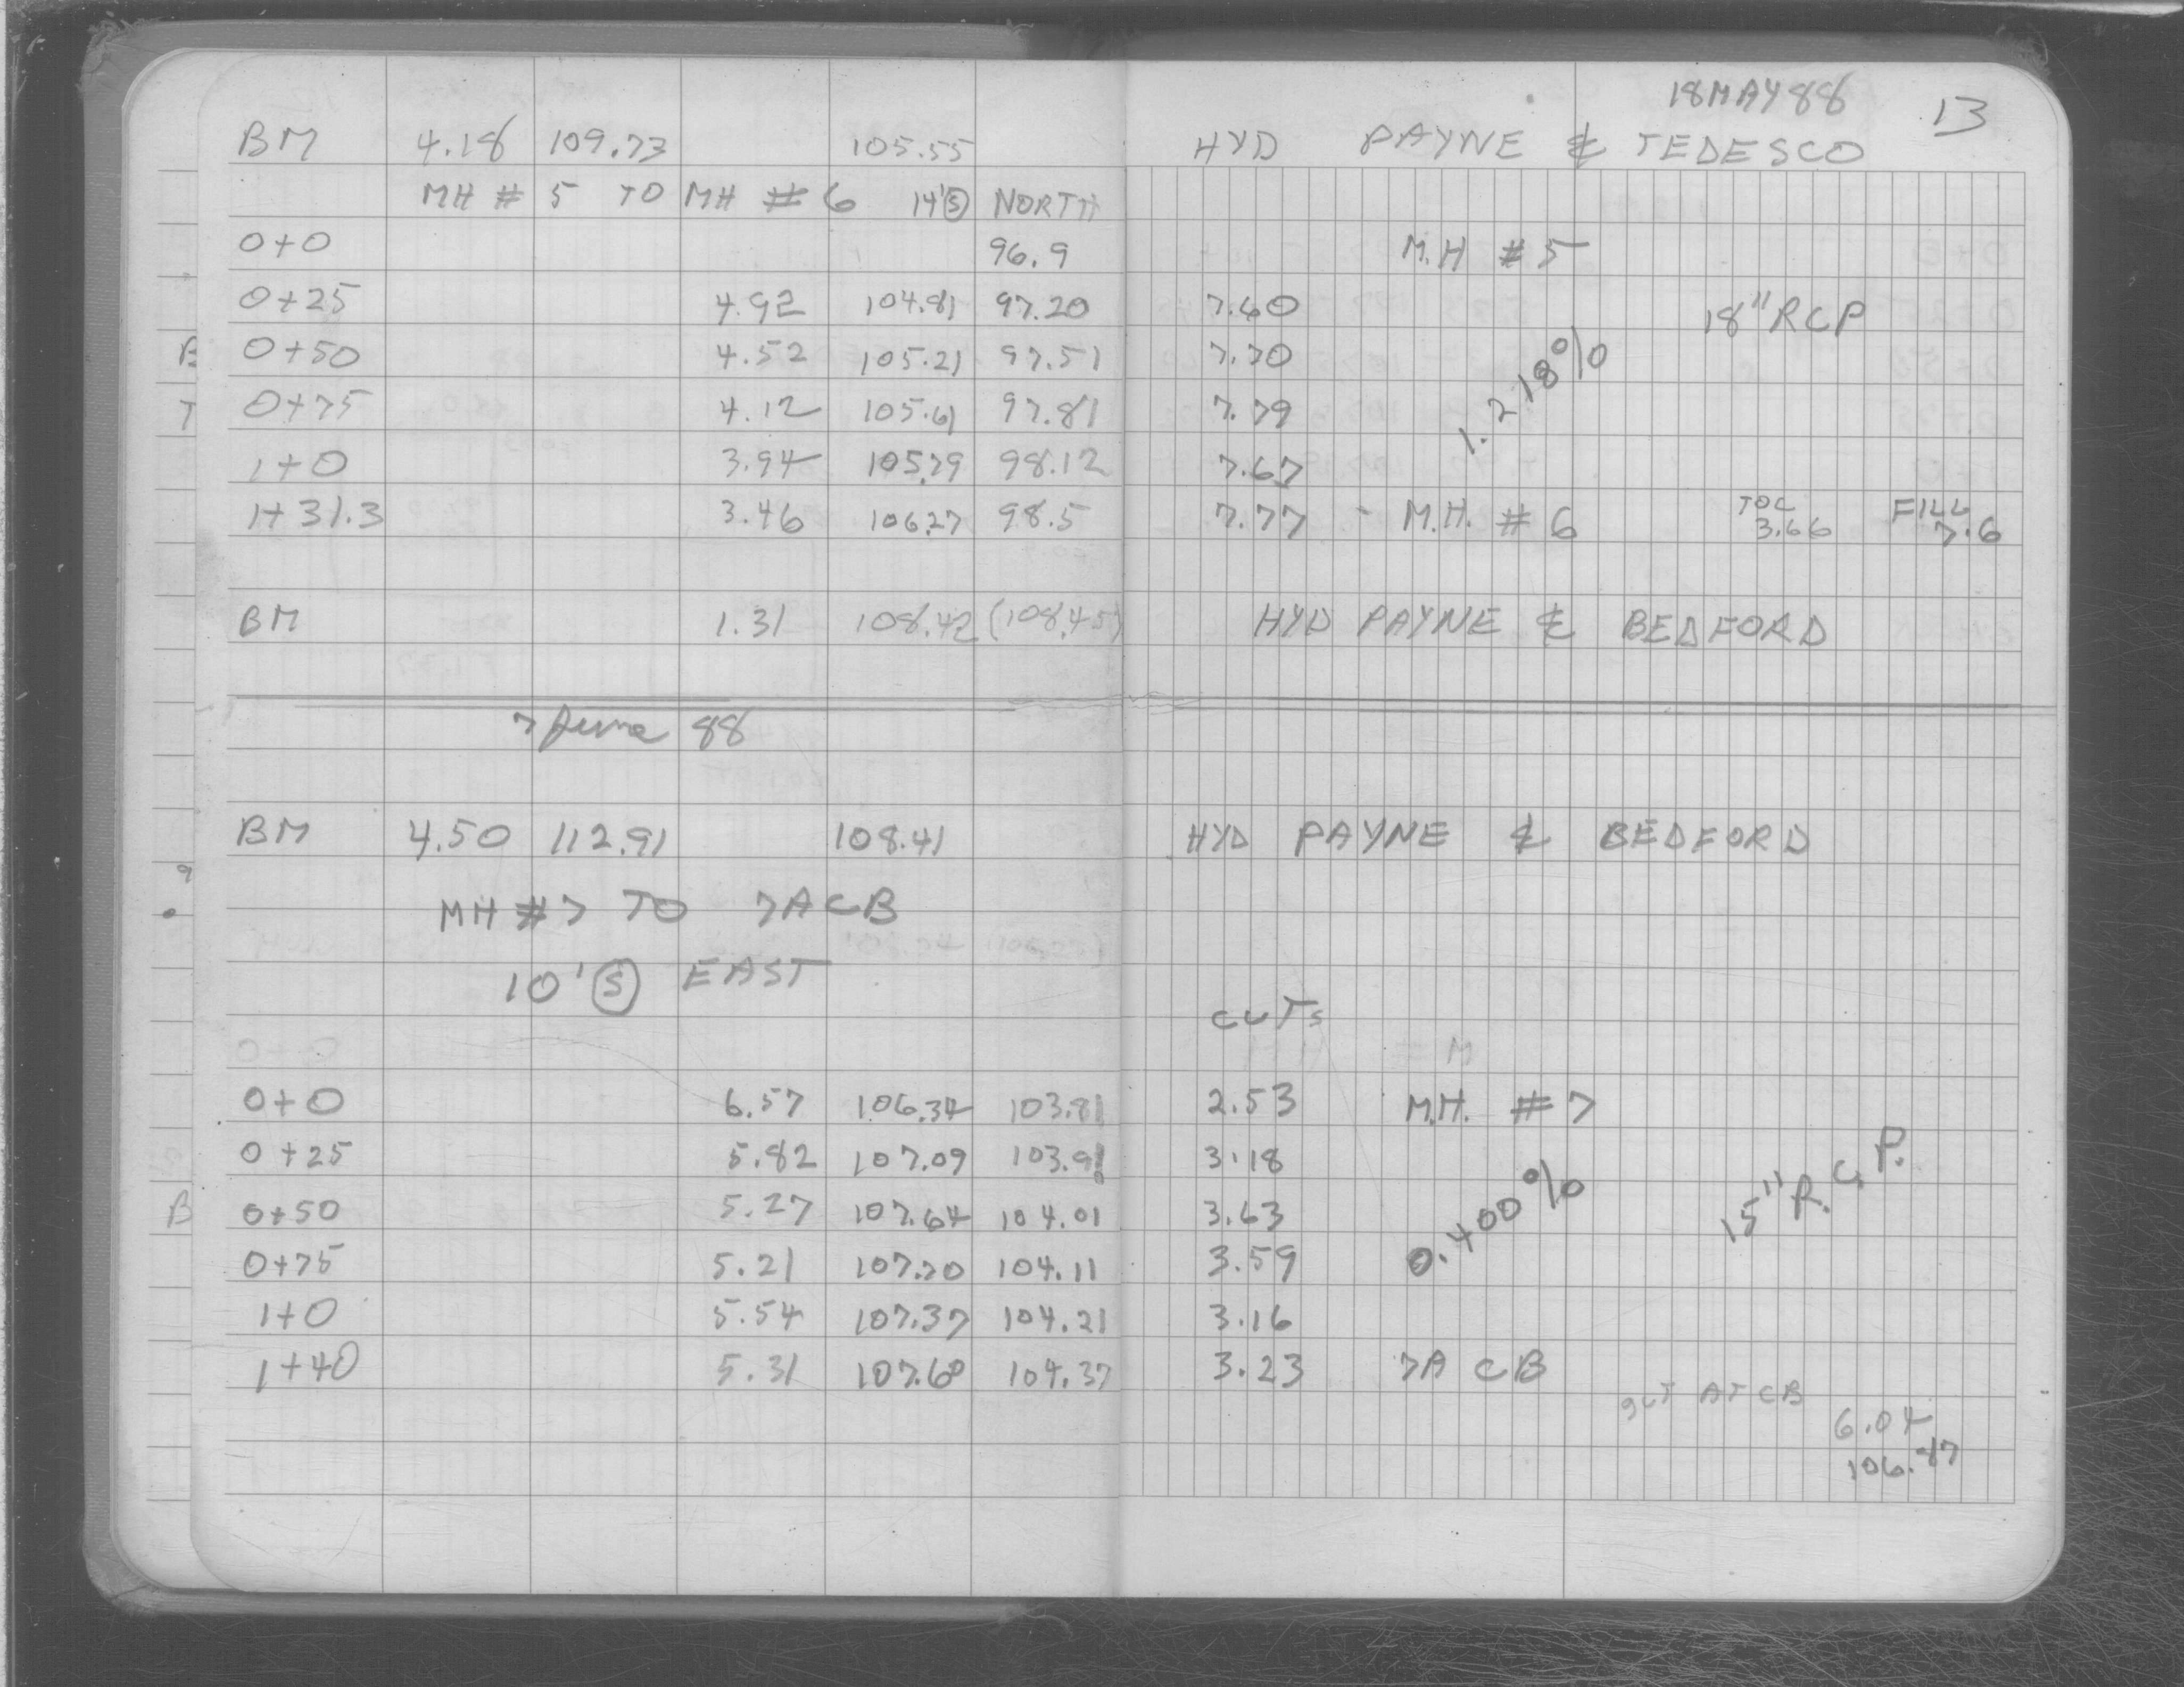 18MAY88 13
BM 4.18 109.73 105.55 HYD PAYNE & TEDESCO
MH # 5 TO MH # 6 14' Ⓢ NORTH
0+0 96.9 M.H #5
0+25 4.92 104.81 97.20 7.60 18" RCP
0+50 4.52 105.21 97.51 7.70
0+75 4.12 105.61 97.81 7.79 1.218%
1+0 3.94 105.79 98.12 7.67
1+31.3 3.46 106.27 98.5 7.77 - M.H. #6 TOC 3.66 FILL 7.6
BM 1.31 108.42 (108.45) HYD PAYNE & BEDFORD
7 June 88
BM 4.50 112.91 108.41 HYD PAYNE & BEDFORD
MH #7 TO 7A CB
10' Ⓢ EAST
CUTS
0+0 6.57 106.34 103.81 2.53 M.H. #7
0+25 5.82 107.09 103.91 3.18
0+50 5.27 107.64 104.01 3.63 0.400% 15" R.C.P.
0+75 5.21 107.70 104.11 3.59
1+0 5.54 107.37 104.21 3.16
1+40 5.31 107.60 104.37 3.23 7A CB
gut AT CB 6.04
106.87